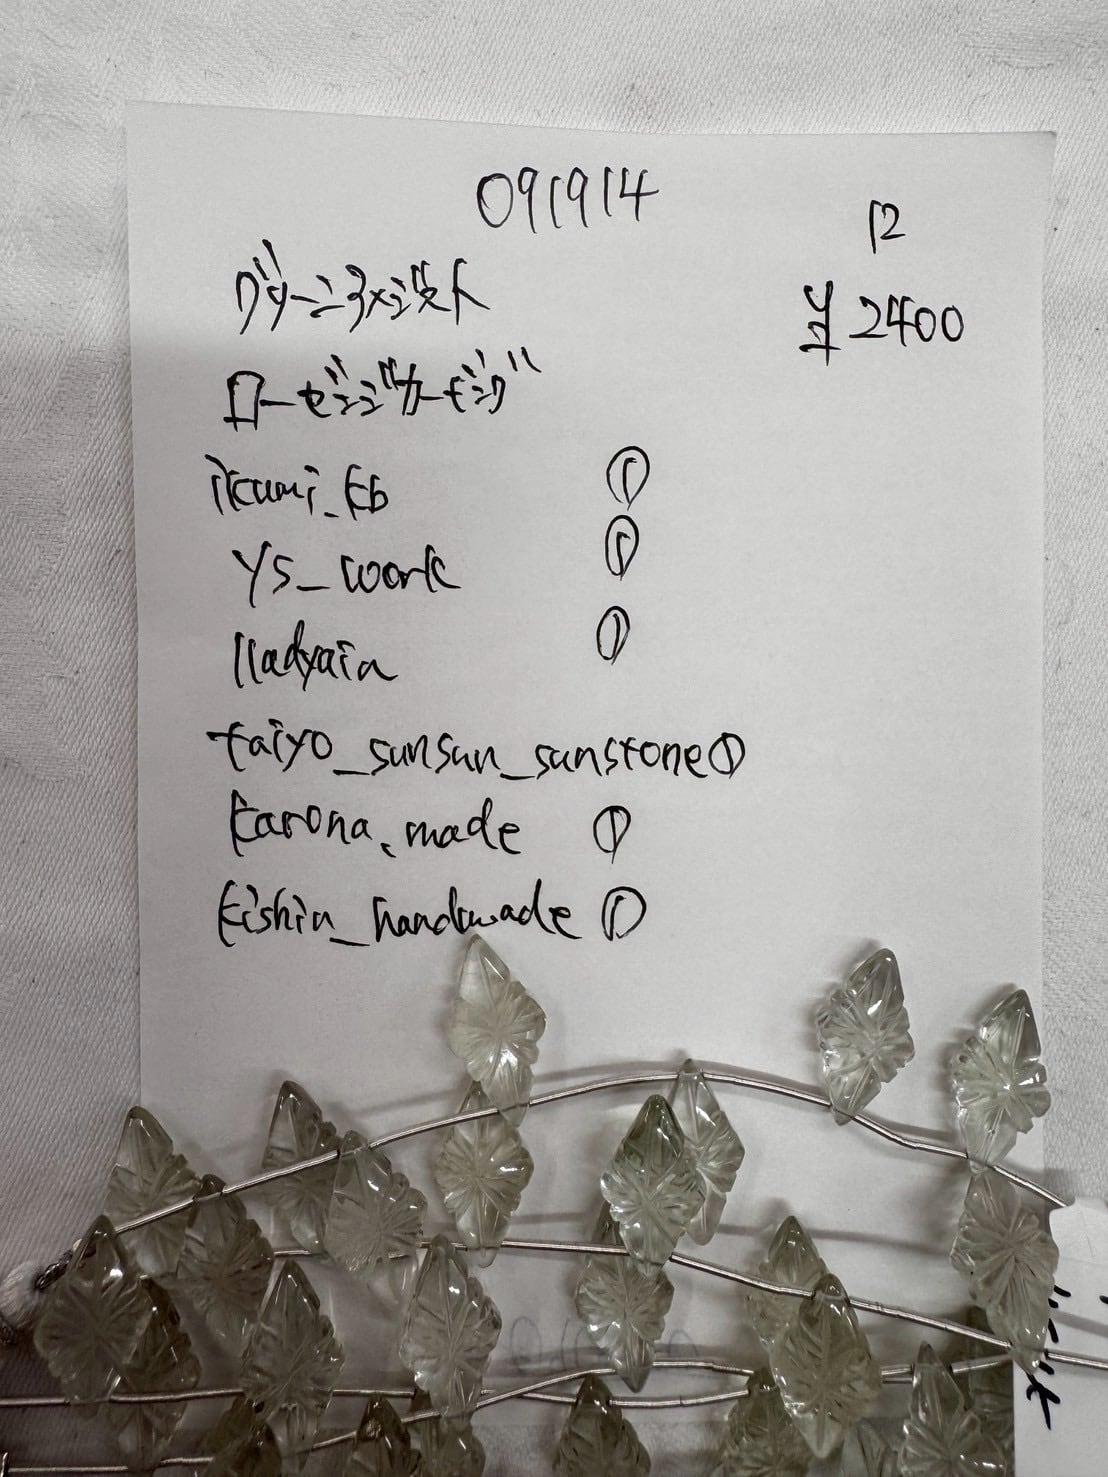 091914
12
¥2400
グリーンアメジスト
ローゼンジカービング
ikumi_kb ①
ys_work ①
lladyain ①
taiyo_sunsun_sunstone①
karona.made ①
kishin_handmade ①